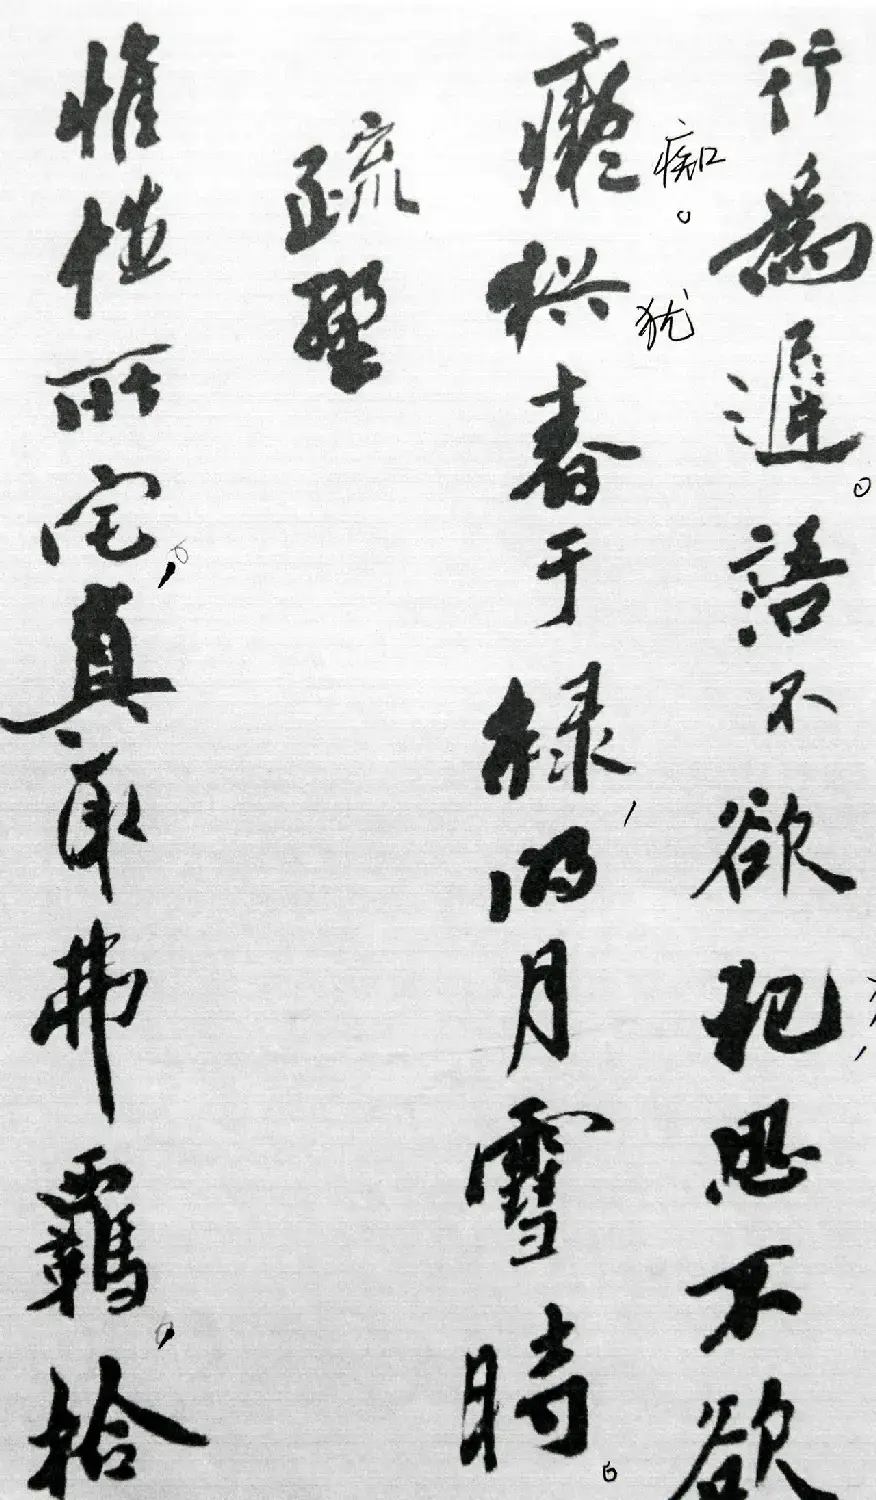 行為遲。語不欲犯,思不欲
痴。犹
癡猶春于綠,明月雪時。
疏野
惟性所宅,真取弗羈,拾